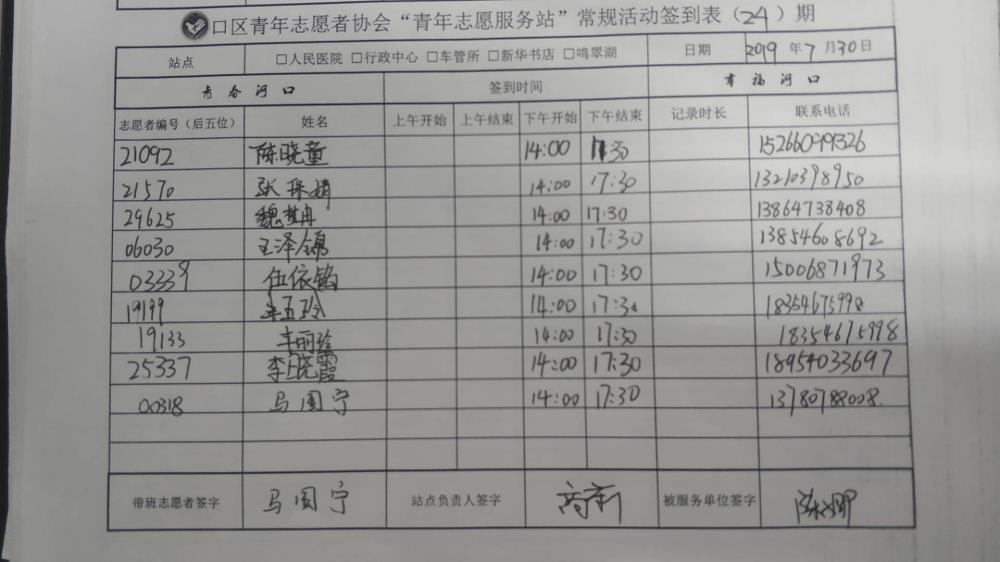 口区青年志愿者协会“青年志愿服务站”常规活动签到表（24）期
站点 □人民医院 □行政中心 □车管所 □新华书店 □鸣翠湖 日期 2019 年 7 月 30 日
青春河口 签到时间 幸福河口
志愿者编号（后五位） 姓名 上午开始 上午结束 下午开始 下午结束 记录时长 联系电话
21092 陈晓童 14:00 15266099326
21570 张 14:00 17:30 13210398950
29625 魏 14:00 17:30 13864738408
06030 王泽锦 14:00 17:30 13854608692
03339 伍依铭 14:00 17:30 15006871973
19199 14:00 17:30 18354675998
19133 14:00 17:30 18354675998
25337 李晓霞 14:00 17:30 18954033697
00318 马国宁 14:00 17:30 13780788008
带班志愿者签字 马国宁 站点负责人签字 被服务单位签字